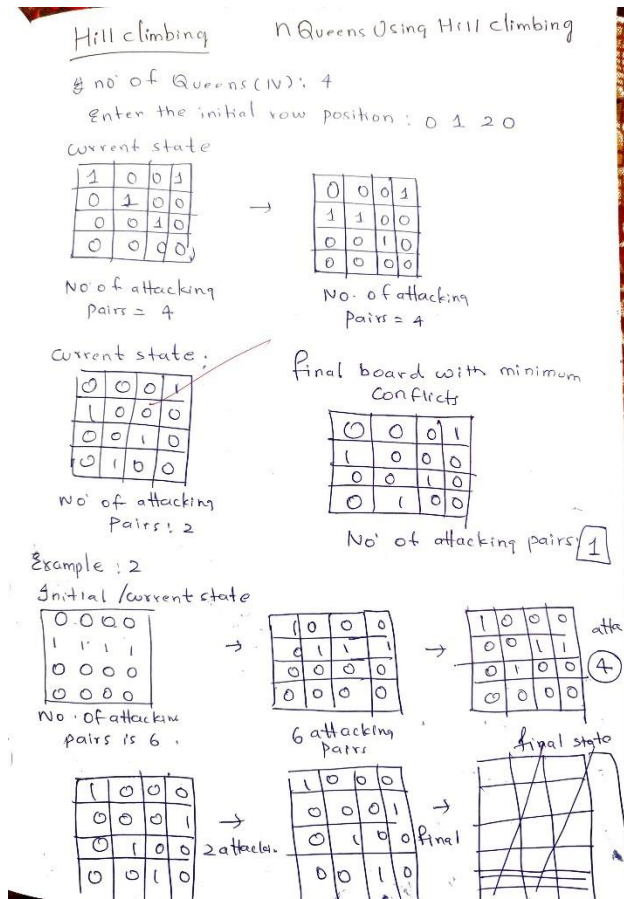 Hill climbing n Queens Using Hill climbing
no of Queens (IV): 4
Enter the initial row position : 0 1 2 0
current state
1 0 0 1
0 1 0 0
0 0 1 0
0 0 0 0
→
0 0 0 1
1 1 0 0
0 0 1 0
0 0 0 0
No of attacking
Pairs = 4
No. of attacking
Pairs = 4
Current state:
0 0 0 1
1 0 0 0
0 0 1 0
0 1 0 0
No of attacking
Pairs: 2
final board with minimum
conflicts
0 0 0 1
1 0 0 0
0 0 1 0
0 1 0 0
No of attacking pairs: 1
Example : 2
Initial / current state
0 0 0 0
1 1 1 1
0 0 0 0
0 0 0 0
No. of attackin
pairs is 6.
→
1 0 0 0
0 1 1 1
0 0 0 0
0 0 0 0
6 attacking
Pairs
→
1 0 0 0
0 0 1 1
0 1 0 0
0 0 0 0
atta
4
final state
1 0 0 0
0 0 0 1
0 1 0 0
0 0 1 0
→
2 attacks.
1 0 0 0
0 0 0 1
0 1 0 0
0 0 1 0
→
final